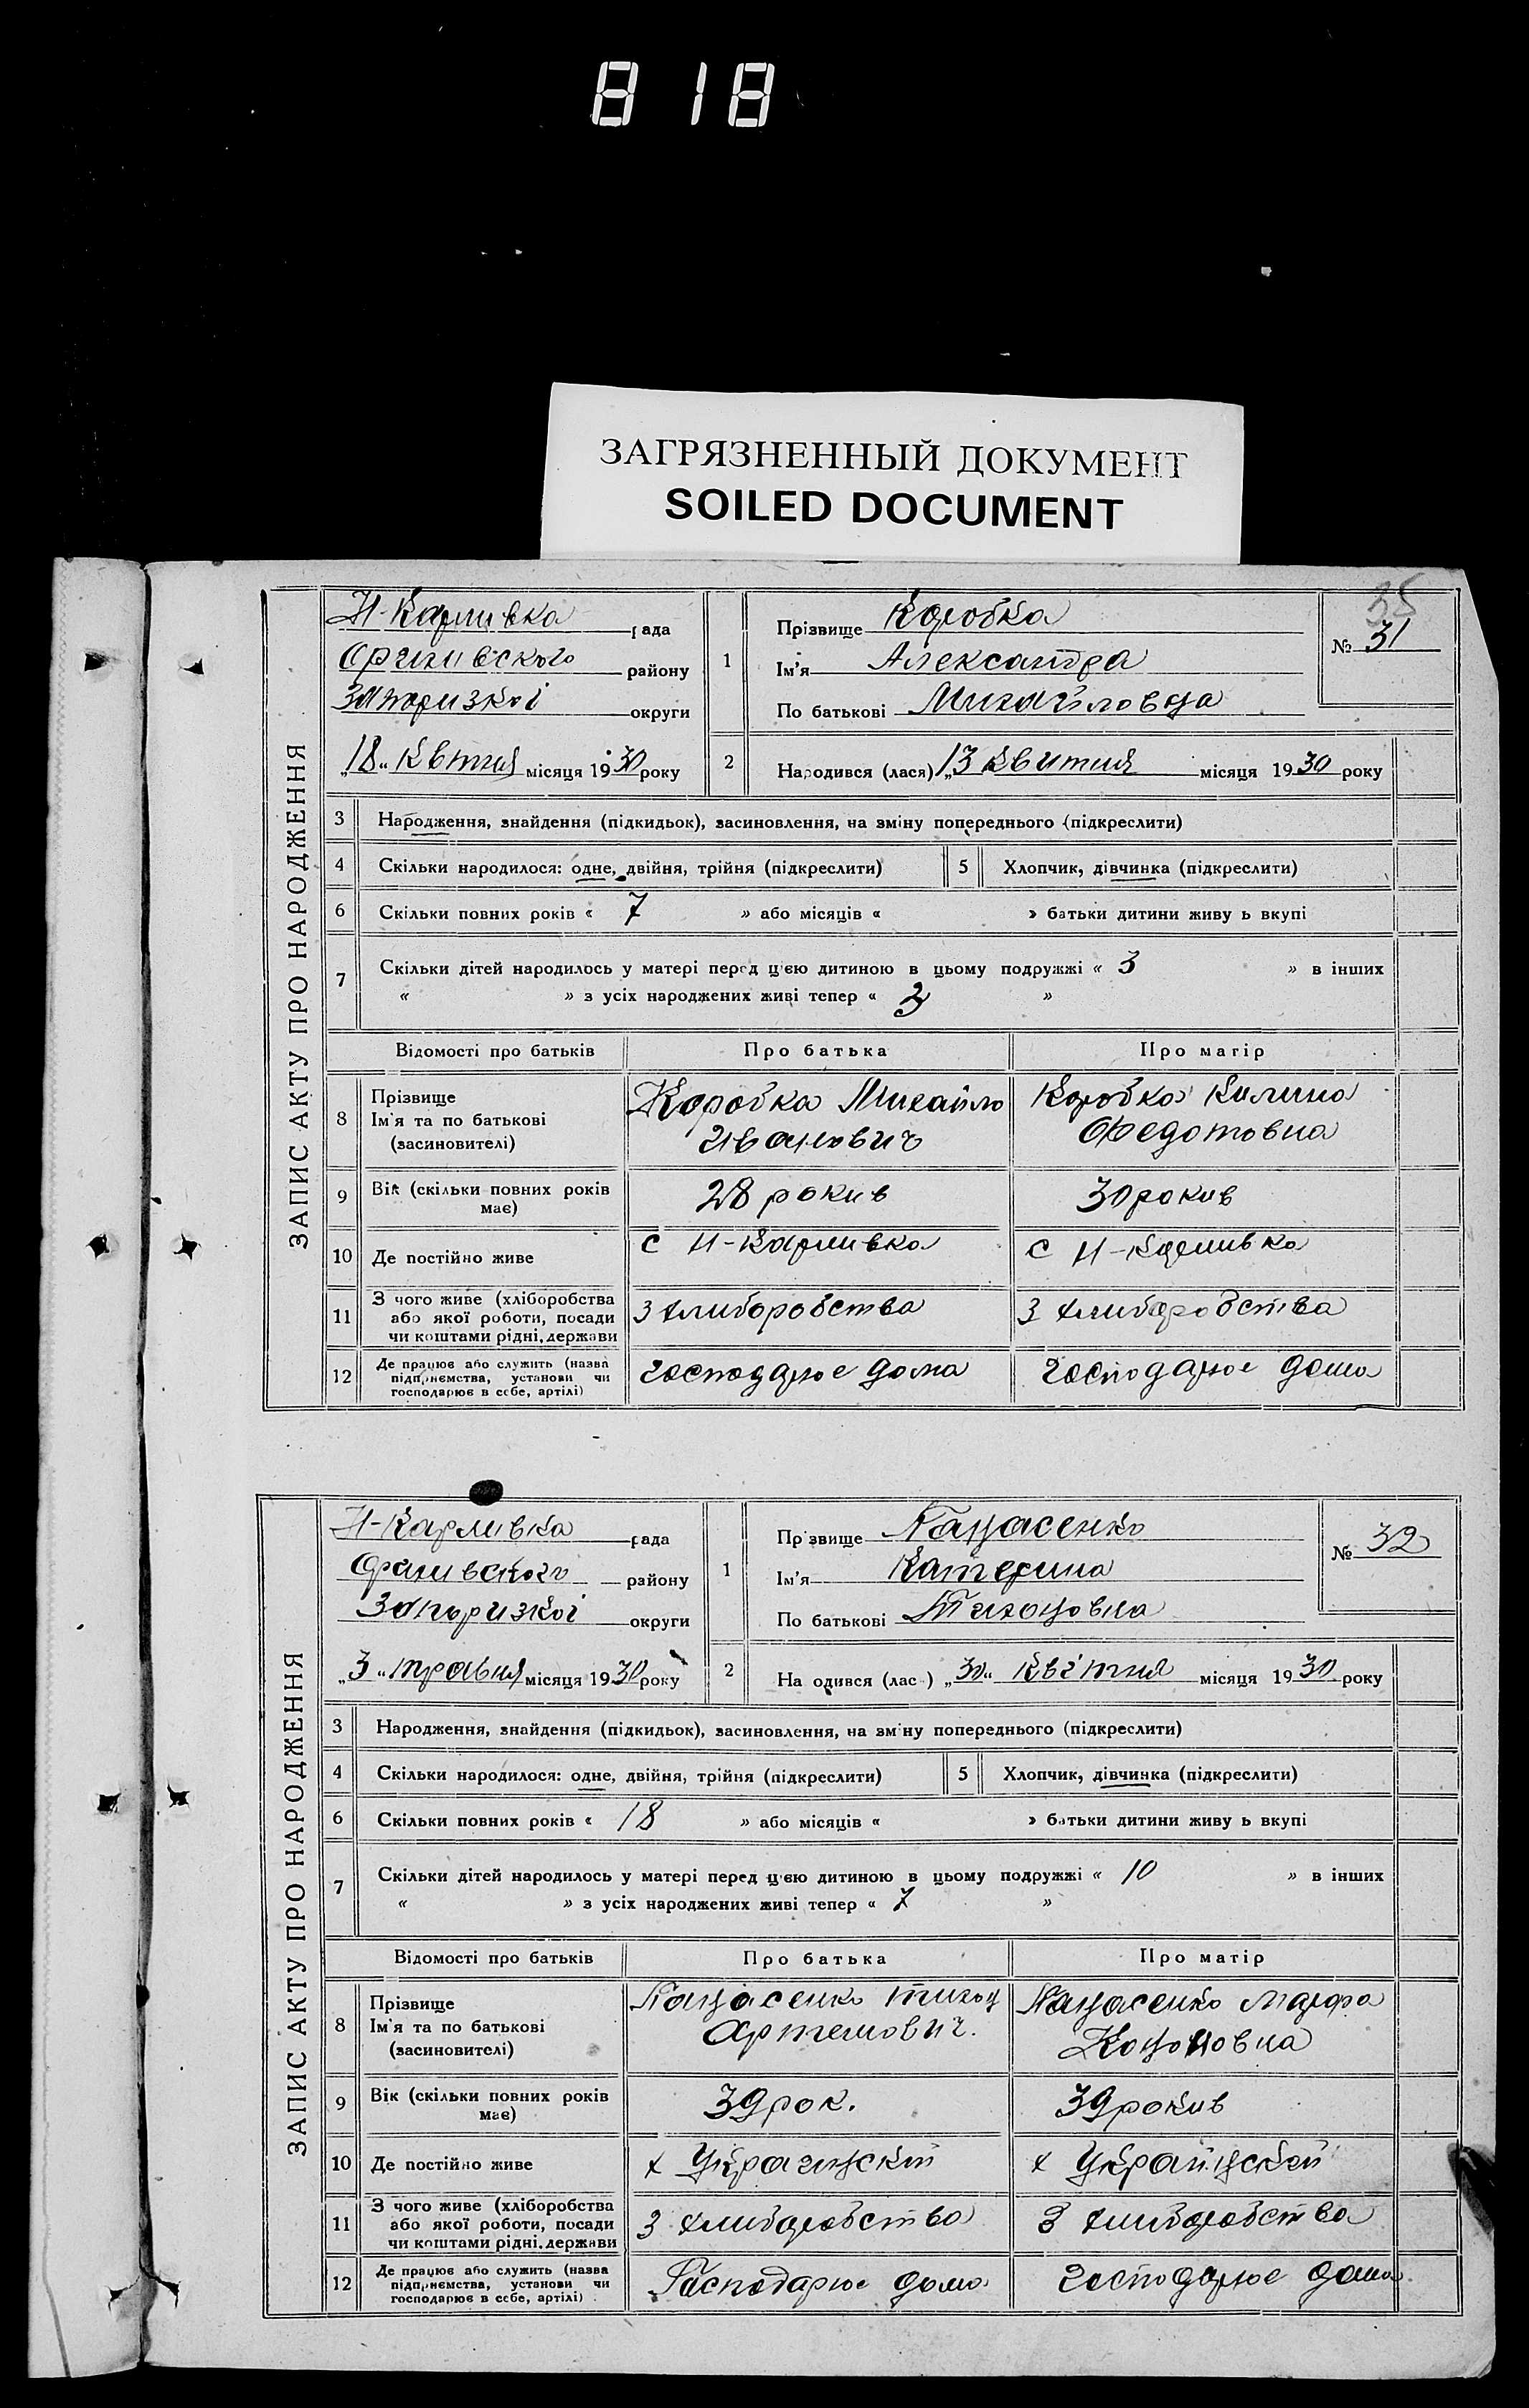 818
ЗАГРЯЗНЕННЫЙ ДОКУМЕНТ
SOILED DOCUMENT
35
ЗАПИС АКТУ ПРО НАРОДЖЕННЯ
Н-Карливка рада
Орхивского району
Запоризкоі округи
„18" Квтня місяця 1930 року
1 Прізвище Коробка
Ім'я Александра
По батькові Михайловна
№ 31
2 Народився (лася) „13 Квитня місяця 1930 року
3 Народження, знайдення (підкидьок), засиновлення, на зміну попереднього (підкреслити)
4 Скільки народилося: одне, двійня, трійня (підкреслити) 5 Хлопчик, дівчинка (підкреслити)
6 Скільки повних років « 7 » або місяців « » батьки дитини живу ь вкупі
7 Скільки дітей народилось у матері перед цією дитиною в цьому подружжі « 3 » в інших
« » з усіх народжених живі тепер « 3 »
Відомості про батьків Про батька Про матір
8 Прізвище
Ім'я та по батькові
(засиновителі)
Коробка Михайло
Иванович
Коробка Килина
Федотовна
9 Вік (скільки повних років
має)
28 рокив
30 рокив
10 Де постійно живе
с Н-Карливка
с Н-Карливка
11 З чого живе (хліборобства
або якої роботи, посади
чи коштами рідні, держави
З хлиборобства
З хлиборобства
12 Де працює або служить (назва
підприємства, установи чи
господарює в себе, артілі)
господарює дома
господарює дома
ЗАПИС АКТУ ПРО НАРОДЖЕННЯ
Н-Карливка рада
Орхивского району
Запоризкоі округи
„3" травня місяця 1930 року
1 Пр звище Панасенко
Ім'я Катерина
По батькові Тихоновна
№ 32
2 На одився (лас ) „30" Квітня місяця 1930 року
3 Народження, знайдення (підкидьок), засиновлення, на зм ну попереднього (підкреслити)
4 Скільки народилося: одне, двійня, трійня (підкреслити) 5 Хлопчик, дівчинка (підкреслити)
6 Скільки повних років « 18 » або місяців « » батьки дитини живу ь вкупі
7 Скільки дітей народилось у матері перед цією дитиною в цьому подружжі « 10 » в інших
« » з усіх народжених живі тепер « 7 »
Відомості про батьків Про батька Про матір
8 Прізвище
Ім'я та по батькові
(засиновителі)
Панасенко Тихон
Артемович.
Панасенко Марфа
Кононовна
9 Вік (скільки повних років
має)
39 рок.
39 рокив
10 Де постійно живе
х Украинский
х Украинский
11 З чого живе (хліборобства
або якої роботи, посади
чи коштами рідні, держави
З хлиборобства
З хлиборобства
12 Де працює або служить (назва
підприємства, установи чи
господарює в себе, артілі)
Господарює дома
господарює дома